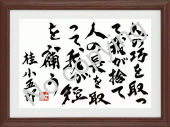 人の巧を取っ
て我が拙を捨て
人の長を取
って我が短
を補う
桂小五郎